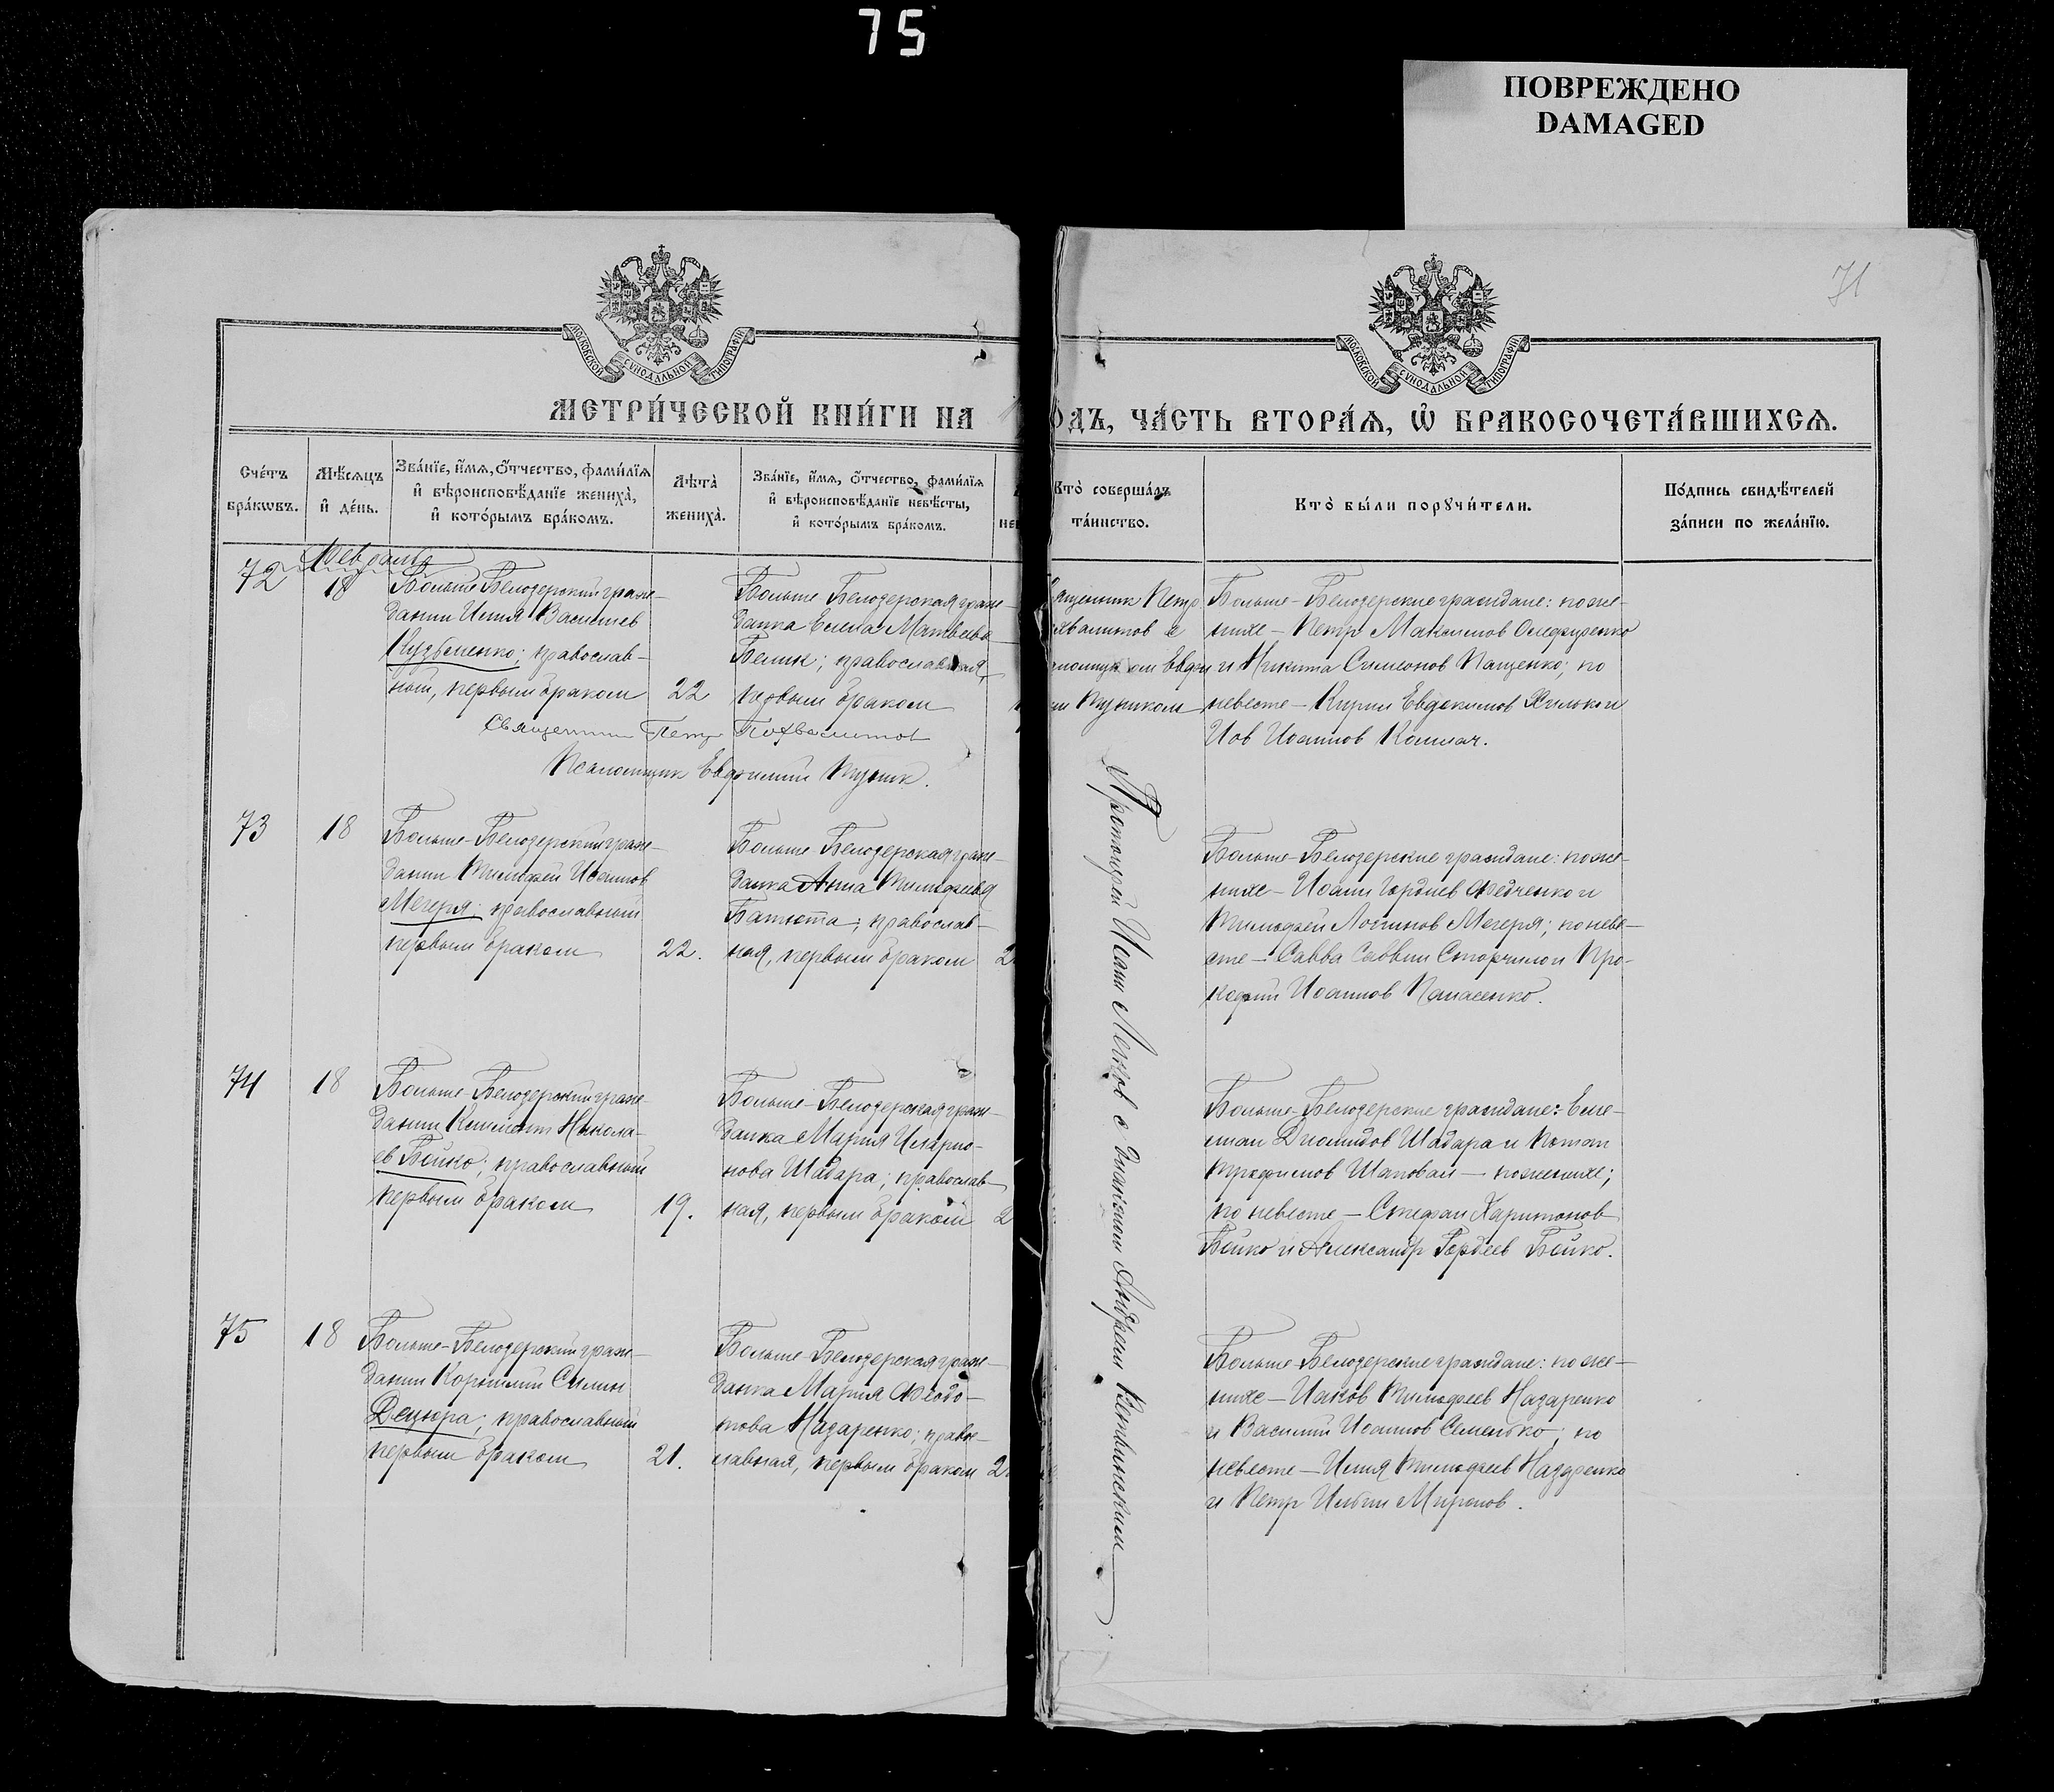 75
ПОВРЕЖДЕНО
DAMAGED
71
МОСКОВСКОЙ СѴНОДАЛЬНОЙ ТИПОГРАФІИ
МОСКОВСКОЙ СѴНОДАЛЬНОЙ ТИПОГРАФІИ
МЕТРИ́ЧЕСКОЙ КНИ́ГИ НА
ОДЪ, ЧА́СТЬ ВТОРА́Я, Ѿ БРАКОСОЧЕТА́ВШИХСЯ.
Сче́тъ бра́кѡвъ.
Мѣ́сяцъ и҆ де́нь.
Зва́нїе, и҆́мя, ѻ҆́тчество, фами́лїя
и҆ вѣроисповѣ́данїе жениха̀,
и҆ кото́рымъ бра́комъ.
Лѣта̀ жениха̀.
Зва́нїе, и҆́мя, ѻ҆́тчество, фами́лїя
и҆ вѣроисповѣ́данїе невѣ́сты,
и҆ кото́рымъ бра́комъ.
Кто̀ соверша́лъ
та́инство.
Кто̀ бы́ли порꙋчи́тели.
По́дпись свидѣ́телей
за́писи по жела́нїю.
Февраль
72
18
Больше Белозерский граж-
данин Илия Васильев
Кузьменко; православ-
ный, первым браком
22
Больше Белозерская граж-
данка Елена Матвеева
Белик; православная,
первым браком
Священник Петр Похвалитов
Псаломщик Евфимий Пузник.
ященник Петр
хвалитов с
Больше-Белозерские граждане: по же-
нихе - Петр Максимов Олефиренко
и Никита Симеонов Пащенко; по
невесте - Кирил Евдокимов Хилько и
Иов Иоаннов Колмач.
73
18
Больше-Белозерский граж-
данин Тимофей Иоаннов
Мегеря; православный
первым браком
22.
Больше Белозерская граж-
данка Анна Тимофеева
Батюта; православ-
ная, первым браком
2
Протоиерей Иоанн Лежов с диаконом Андреем
Больше-Белозерские граждане: по же-
нихе - Иоанн Гордиев Федченко и
Тимофей Логгинов Мегеря; по неве-
сте - Савва Саввин Сторчило и Про-
кофий Иоаннов Панасенко.
74
18
Больше-Белозерский граж-
данин Климент Никола-
ев Бойко; православный
первым браком
19.
Больше-Белозерская граж-
данка Мария Иларио-
нова Шабара; православ-
ная, первым браком
2
Больше-Белозерские граждане: Еме-
лиан Диомидов Шабара и Потап
Трофимов Шаповал - по женихе;
по невесте - Стефан Харитонов
Бойко и Александр Гордеев Бойко.
75
18
Больше-Белозерский граж-
данин Корнилий Силин
Децюра; православный
первым браком
21.
Больше-Белозерская граж-
данка Мария Феодо-
това Назаренко; правос-
лавная, первым браком
2
Больше-Белозерские граждане: по же-
нихе - Иаков Тимофеев Назаренко
и Василий Иоаннов Семенько; по
невесте - Илия Тимофеев Назаренко
и Петр Ильин Миронов.